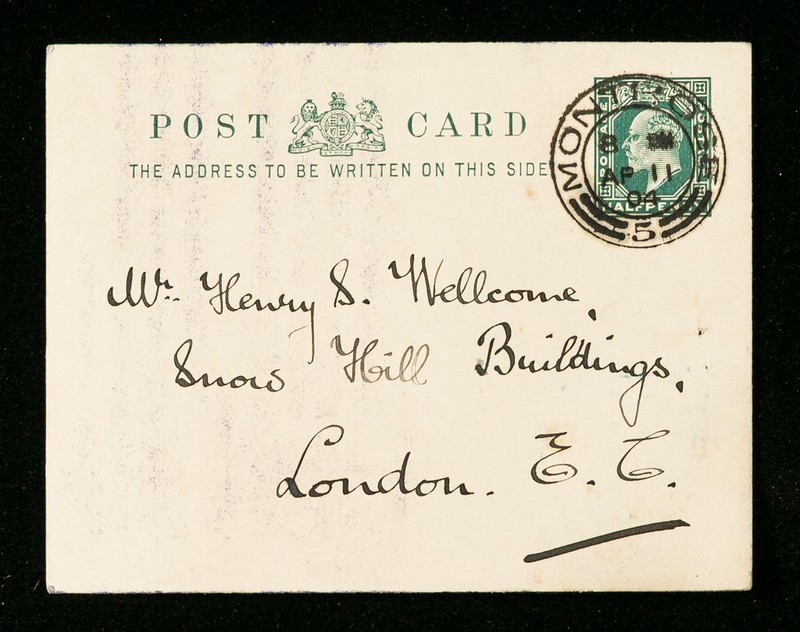 POST CARD
THE ADDRESS TO BE WRITTEN ON THIS SIDE
MONTROSE
8
AP 11
04
5
HALFPENNY
Mr. Henry S. Wellcome,
Snow Hill Buildings,
London. E. C.